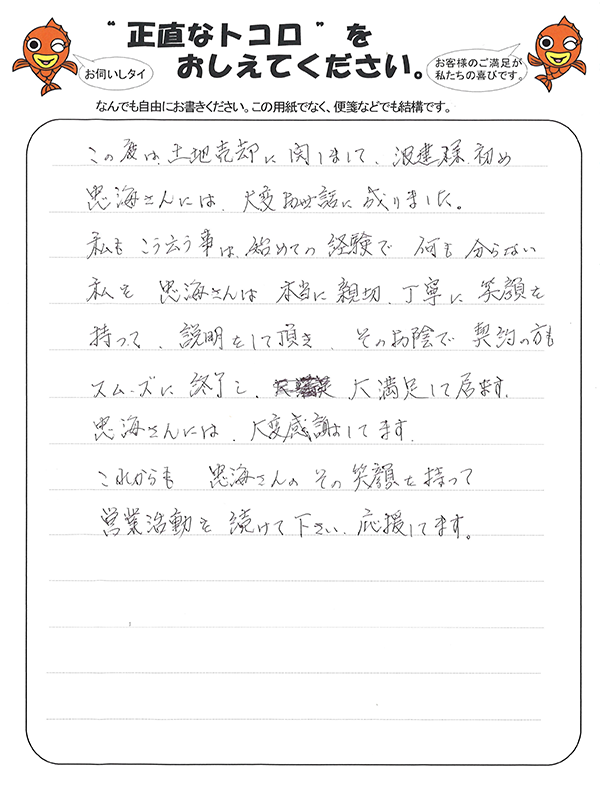 “正直なトコロ”を
おしえてください。
お伺いしタイ
お客様のご満足が
私たちの喜びです。
なんでも自由にお書きください。この用紙でなく、便箋などでも結構です。
この度は、土地売却に関しまして、汲建様、初め
忠海さんには、大変お世話に成りました。
私も こう云う事は、始めての経験で 何も分らない
私を 忠海さんは 本当に親切、丁寧に笑顔を
持って、説明をして頂き、そのお陰で 契約の方も
スムーズに終了し、大満足して居ます。
忠海さんには、大変感謝してます。
これからも 忠海さんの その笑顔を持って
営業活動を続けて下さい。応援してます。